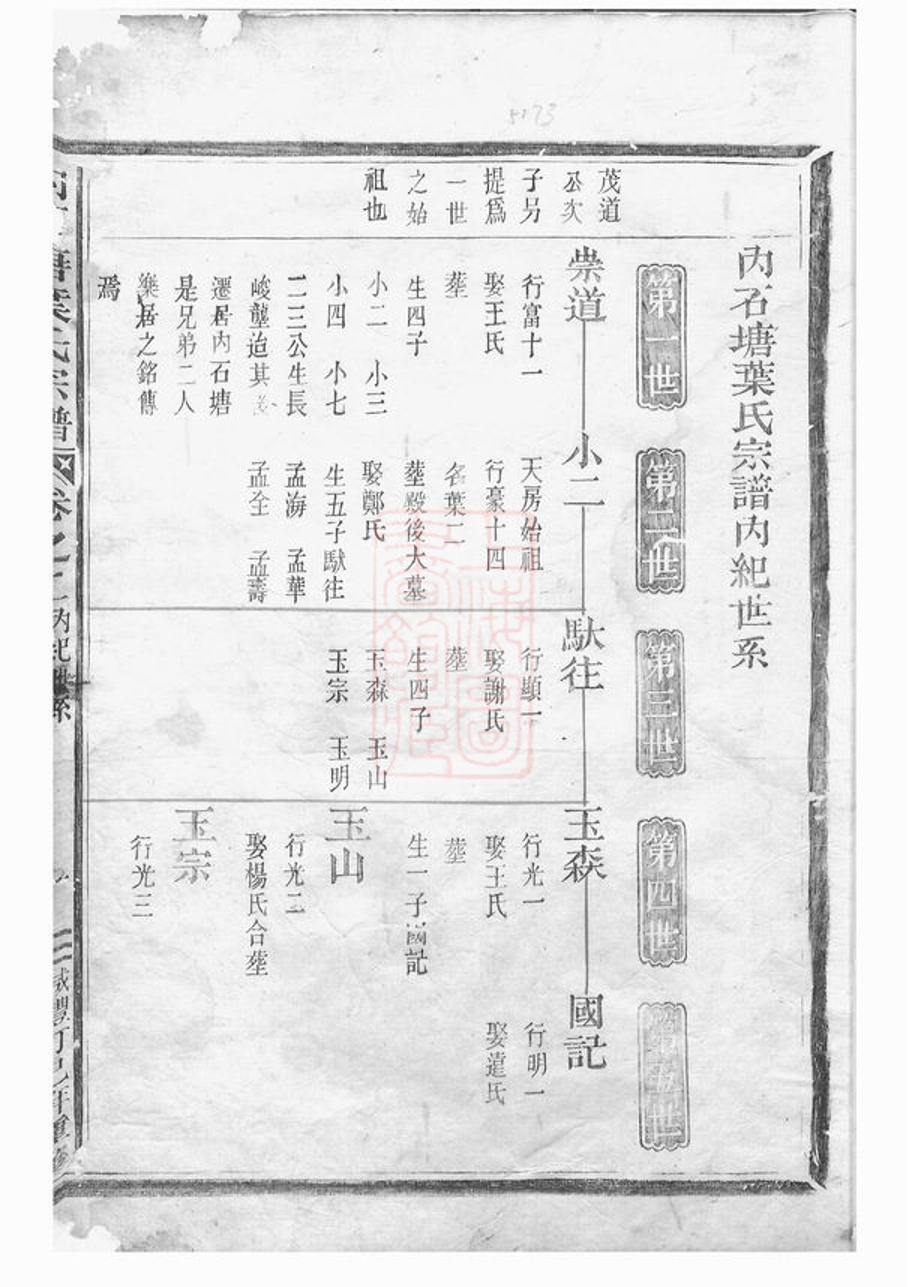 內石塘葉氏宗譜內紀世系
第一世
第二世
第三世
第四世
第五世
茂道
公次
子另
提爲
一世
之始
祖也
崇道
行富十一
娶王氏
塟
生四子
小二 小三
小四 小七
二三公生長
峻壟迨其
遷居內石塘
是兄弟二人
樂居之銘傳
焉
小二
天房始祖
行豪十四
塟殿後大墓
名葉二
娶鄭氏
生五子馱往
孟海 孟華
孟全 孟壽
馱往
行顯一
娶謝氏
塟
生四子
玉森 玉山
玉宗 玉明
玉森
行光一
娶王氏
塟
生一子國記
玉山
行光二
娶楊氏合塟
玉宗
行光三
國記
行明一
娶 氏
塘葉氏宗譜 卷之二內紀世系 咸豐丁巳年重修